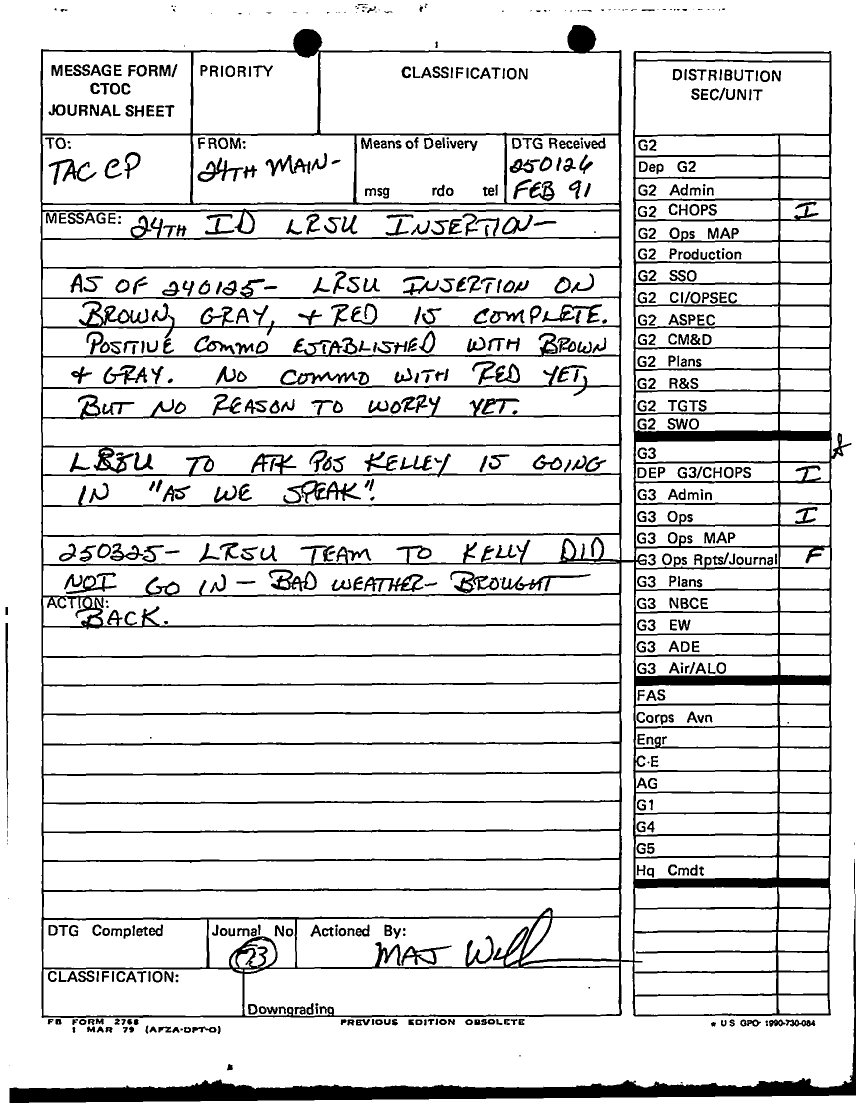 MESSAGE FORM/
CTOC
JOURNAL SHEET
PRIORITY
CLASSIFICATION
TO:
TAC CP
FROM:
24TH MAIN-
Means of Delivery
msg rdo tel
DTG Received
250126
FEB 91
MESSAGE: 24TH ID LRSU INSERTION-
AS OF 240125- LRSU INSERTION ON
BROWN, GRAY, + RED IS COMPLETE.
POSITIVE COMMO ESTABLISHED WITH BROWN
+ GRAY. NO COMMO WITH RED YET,
BUT NO REASON TO WORRY YET.
LRSU TO ATK POS KELLEY IS GOING
IN "AS WE SPEAK".
250325- LRSU TEAM TO KELLY DID
NOT GO IN - BAD WEATHER- BROUGHT
ACTION: BACK.
DTG Completed
Journal No
73
Actioned By:
MAJ
CLASSIFICATION:
Downgrading
FB FORM 2768
1 MAR 79 (AFZA-DPT-O)
PREVIOUS EDITION OBSOLETE
DISTRIBUTION
SEC/UNIT
G2
Dep G2
G2 Admin
G2 CHOPS I
G2 Ops MAP
G2 Production
G2 SSO
G2 CI/OPSEC
G2 ASPEC
G2 CM&D
G2 Plans
G2 R&S
G2 TGTS
G2 SWO
G3
DEP G3/CHOPS I
G3 Admin
G3 Ops I
G3 Ops MAP
G3 Ops Rpts/Journal F
G3 Plans
G3 NBCE
G3 EW
G3 ADE
G3 Air/ALO
FAS
Corps Avn
Engr
C-E
AG
G1
G4
G5
Hq Cmdt
* U S GPO- 1990-730-084